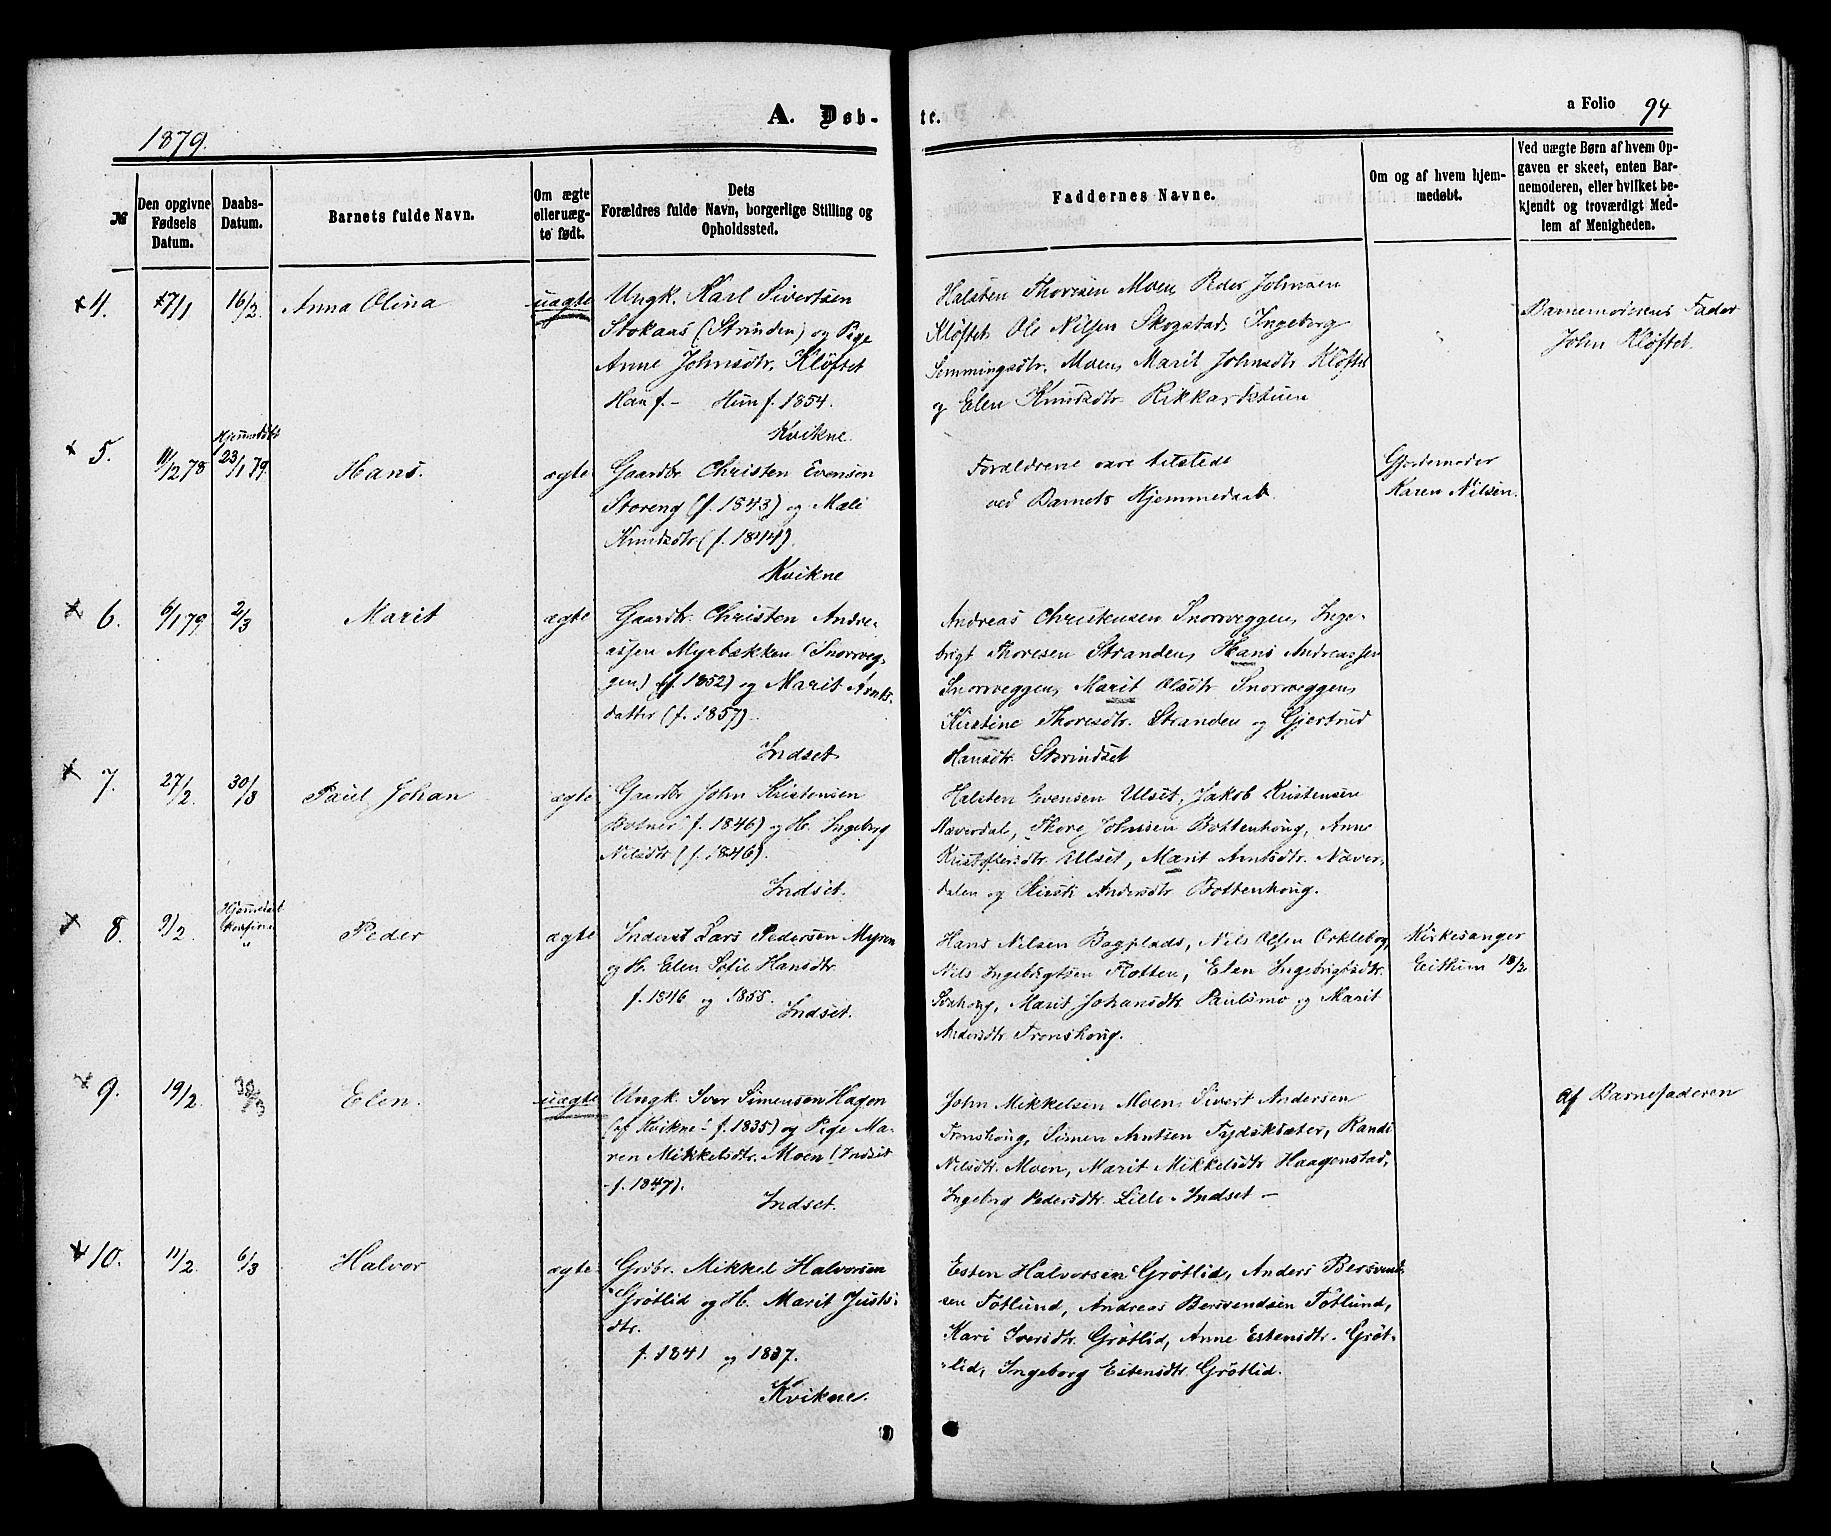 1879.
A. Døb-
te.
a Folio 94
№
Den opgivne Fødsels Datum.
Daabs-Datum.
Barnets fulde Navn.
Om ægte elleruæg-te født.
Dets
Forældres fulde Navn, borgerlige Stilling og
Opholdssted.
Faddernes Navne.
Om og af hvem hjem-
medøbt.
Ved uægte Børn af hvem Op-
gaven er skeet, enten Bar-
nemoderen, eller hvilket be-
kjendt og troværdigt Med-
lem af Menigheden.
4. 17/1 16/2. Anna Olina uægte
Ungk. Karl Sivertsen
Stokaas (Strinden) og Pige
Anne Johnsdtr. Kløftet
Han f. - Hun f. 1854.
Kvikne.
Halsten Thoresen Moen, Peder Johnsen
Kløftet, Ole Nilsen Skogstad, Ingeborg
Semmingsdtr. Moen, Marit Johnsdtr Kløftet
og Elen Knudsdtr. Rikkardstuen
Barnemoderens Fader
John Kløftet.
5. 11/12 78 Hjemmedøbt 23/1 79. Hans. ægte
Gaardbr Christen Evensen
Storeng (f. 1843) og Mali
Knudsdtr (f. 1844).
Kvikne
Forældrene vare tilstede
ved Barnets Hjemmedaab
Gjordemoder
Karen Nilsen.
6. 6/1 79 2/3 Marit ægte
Gaardbr. Christen Andre-
assen Myrbækken (Snorveg-
gen) (f. 1852) og Marit Arnts-
datter (f. 1857).
Indset.
Andreas Christensen Snorveggen, Inge-
brigt Thoresen Stranden, Hans Andreassen
Snorveggen, Marit Olsdtr Snorveggen,
Kirstine Thoresdtr. Stranden og Gjertrud
Hansdtr Storindset
7. 27/2. 30/3 Paul Johan ægte
Gaardbr John Kristensen
f. 1846) og H. Ingeborg
Nilsdtr (f. 1846).
Indset.
Halsten Evensen Ulset, Jakob Kristensen
Næverdal, Thore Johnsen Bottenhoug, Anne
Kristoffersdtr. Ulset, Marit Arntsdtr. Næver-
dalen og Kirsti Andersdtr Bottenhoug.
8. 9/2. Hjemmedøbt Peder ægte
Inderst Lars Pedersen Myren
og H. Elen Sofie Hansdtr.
f. 1846 og 1855.
Indset.
Hans Nilsen Bagplads, Nils Olsen Orklebog,
Nils Ingebrigtsen Flotten, Elen Ingebrigtsdtr.
Marit Johansdtr Paulsmo og Marit
Andersdtr Fronshoug.
Kirkesanger
Eithum 18/2
9. 19/2. 30/3 Elen. uægte
Ungk. Iver Simensen Hagen
(af Kvikne - f. 1835) og Pige Ma-
ren Mikkelsdtr. Moen (Indset
- f. 1847).
Indset.
John Mikkelsen Moen, Sivert Andersen
Fronshoug, Simen Arntsen Fydsksæter, Randi
Nilsdtr. Moen, Marit Mikkelsdtr Haagenstad,
Ingebrg Pedersdtr. Lille-Indset -
Af Barnefaderen
10. 11/2. 6/3 Halvor ægte
Grdbr. Mikkel Halvorsen
Grøtlid og H. Marit Justs-
dtr.
f. 1841 og 1837.
Kvikne.
Esten Halvorsen Grøtlid, Anders Bersvend-
sen Tøtlund, Andreas Bersvendsen Tøtlund,
Kari Iversdtr. Grøtlid, Anne Estensdtr. Grøt-
lid, Ingeborg Estensdtr Grøtlid.